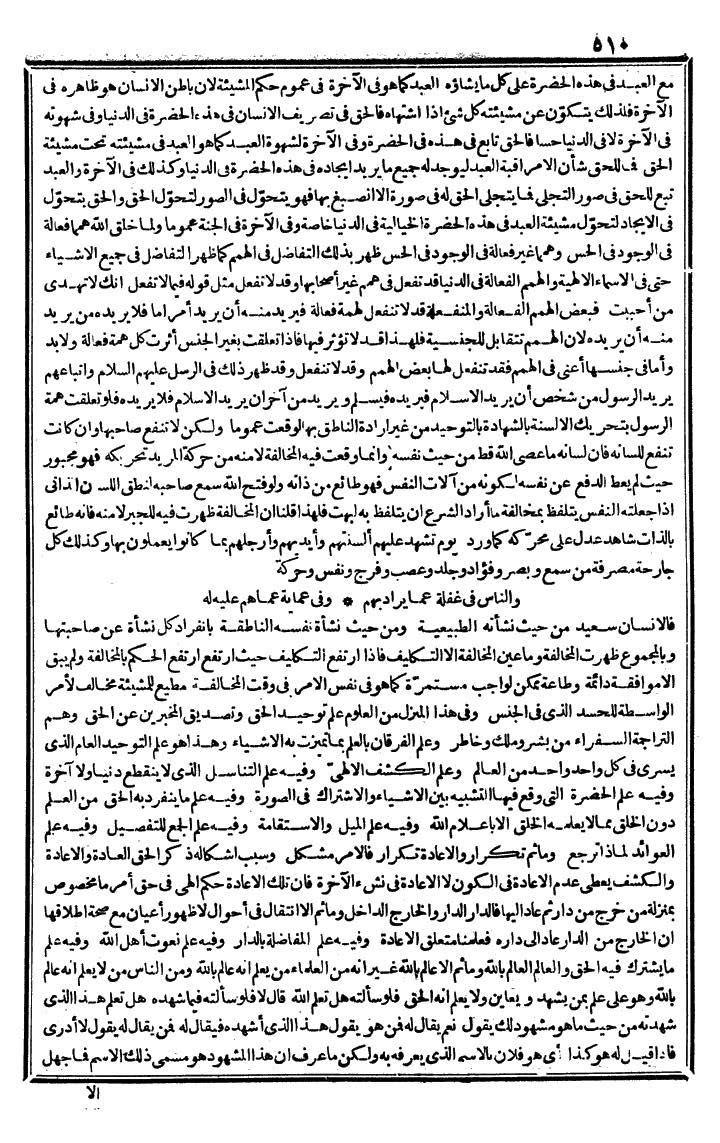 ٥١٠
مع العبد فى هذه الحضرة على كل ما يشاؤه العبد كما هو فى الآخرة فى عموم حكم المشيئة لان باطن الانسان هو ظاهره فى
الآخرة فلذلك يتكوّن عن مشيئته كل شئ اذا اشتهاه فالحق فى تصريف الانسان فى هذه الحضرة فى الدنيا وفى شهوته
فى الآخرة لا فى الدنيا حسا فالحق تابع فى هذه فى الحضرة وفى الآخرة لشهوة العبد كما هو العبد فى مشيئته تحت مشيئة
الحق فما للحق شأن الا مراقبة العبد ليوجد له جميع ما يريد ايجاده فى هذه الحضرة فى الدنيا وكذلك فى الآخرة والعبد
تبع للحق فى صور التجلى فما يتجلى الحق له فى صورة الا انصبغ بها فهو يتحوّل فى الصور لتحوّل الحق والحق يتحوّل
فى الايجاد لتحوّل مشيئة العبد فى هذه الحضرة الخيالية فى الدنيا خاصة وفى الآخرة فى الجنة عموما ولما خلق الله همما فعالة
فى الوجود فى الحس وهمما غير فعالة فى الوجود فى الحس ظهر بذلك التفاضل فى الهمم كما ظهر التفاضل فى جميع الاشياء
حتى فى الاسماء الالهية والهمم الفعالة فى الدنيا قد تفعل فى همم غير أصحابها وقد لا تفعل مثل قوله فيما لا تفعل انك لا تهدى
من أحببت فبعض الهمم الفعالة والمنفعلة قد لا تنفعل لهمة فعالة فيريد منه أن يريد أمرا ما فلا يريده من يريد
منه أن يريده لان الهمم تتقابل للجنسية فلهذا قد لا تؤثر فيها فاذا تعلقت بغير الجنس أثرت كل همة فعالة ولا بد
وأما فى جنسها أعنى فى الهمم فقد تنفعل لها بعض الهمم وقد لا تنفعل وقد ظهر ذلك فى الرسل عليهم السلام واتباعهم
يريد الرسول من شخص أن يريد الاسلام فيريده فيسلم ويريد من آخر ان يريد الاسلام فلا يريده فلو تعلقت همة
الرسول بتحريك الالسنة بالشهادة بالتوحيد من غير ارادة الناطق بها لوقعت عموما ولكن لا تنفع صاحبها وان كانت
تنفع للسانه فان لسانه ما عصى الله قط من حيث نفسه وانما وقعت فيه المخالفة لا منه من حركة المريد تحريكه فهو مجبور
حيث لم يعط الدفع عن نفسه لكونه من آلات النفس فهو طائع من ذاته ولو فتح الله سمع صاحبه لنطق اللسان الذاتى
اذا جعلته النفس يتلفظ بمخالفة ما أراد الشرع ان يتلفظ به لبهت فلهذا قلنا ان المخالفة ظهرت فيه للجبر لا منه فانه طائع
بالذات شاهد عدل على محرّكه كما ورد يوم تشهد عليهم ألسنتهم وأيديهم وأرجلهم بما كانوا يعملون بها وكذلك كل
جارحة مصرفة من سمع وبصر وفؤاد وجلد وعصب وفرج ونفس وحركة
والناس فى غفلة عما يراد بهم * وفى عماية عما هم عليه له
فالانسان سعيد من حيث نشأته الطبيعية ومن حيث نشأة نفسه الناطقة بانفراد كل نشأة عن صاحبتها
وبالمجموع ظهرت المخالفة وما عين المخالفة الا التكليف فاذا ارتفع التكليف حيث ارتفع ارتفع الحكم بالمخالفة ولم يبق
الا موافقة دائمة وطاعة ممكن لواجب مستمرّة كما هو فى نفس الامر فى وقت المخالفة مطيع للمشيئة مخالف لأمر
الواسطة للحسد الذى فى الجنس وفى هذا المنزل من العلوم علم توحيد الحق وتصديق المخبرين عن الحق وهم
التراجمة السفراء من بشر وملك وخاطر وعلم الفرقان بالعلم بما تميزت به الاشياء وهذا هو علم التوحيد العام الذى
يسرى فى كل واحد واحد من العالم وعلم الكشف الالهىّ وفيه علم التناسل الذى لا ينقطع دنيا ولا آخرة
وفيه علم الحضرة التى وقع فيها التشبيه بين الاشياء والاشتراك فى الصورة وفيه علم ما ينفرد به الحق من العلم
دون الخلق بما لا يعلمه الخلق الا باعلام الله وفيه علم الميل والاستقامة وفيه علم الجمع للتفصيل وفيه علم
العوائد لماذا ترجع وما ثم تكرار والاعادة تكرار فالامر مشكل وسبب اشكاله ذكر الحق العادة والاعادة
والكشف يعطى عدم الاعادة فى الكون لا الاعادة فى نشء الآخرة فان تلك الاعادة حكم الهى فى حق أمر ما مخصوص
بمنزلة من خرج من دار ثم عاد اليها فالدار الدار والخارج الداخل وما ثم الا انتقال فى أحوال لا ظهور أعيان مع صحة اطلاقها
ان الخارج من الدار عاد الى داره فعلمنا متعلق الاعادة وفيه علم المفاضلة بالدار وفيه علم نعوت أهل الله وفيه علم
ما يشترك فيه الحق والعالم العالم بالله وما ثم الا عالم بالله غير انه من العلماء من يعلم انه عالم بالله ومن الناس من لا يعلم انه عالم
بالله وهو على علم بمن يشهد ويعاين ولا يعلم انه الحق فلو سألته هل تعلم الله قال لا فلو سألته فيما شهده هل تعلم هذا الذى
شهدته من حيث ما هو مشهود لك يقول نعم يقال له فمن هو يقول هذا الذى أشهده فيقال له فمن يقال له يقول لا أدرى
فاذا قيل له هو كذا أى هو فلان بالاسم الذى يعرفه به ولكن ما عرف ان هذا المشهود هو مسمى ذلك الاسم فما جهل
الا